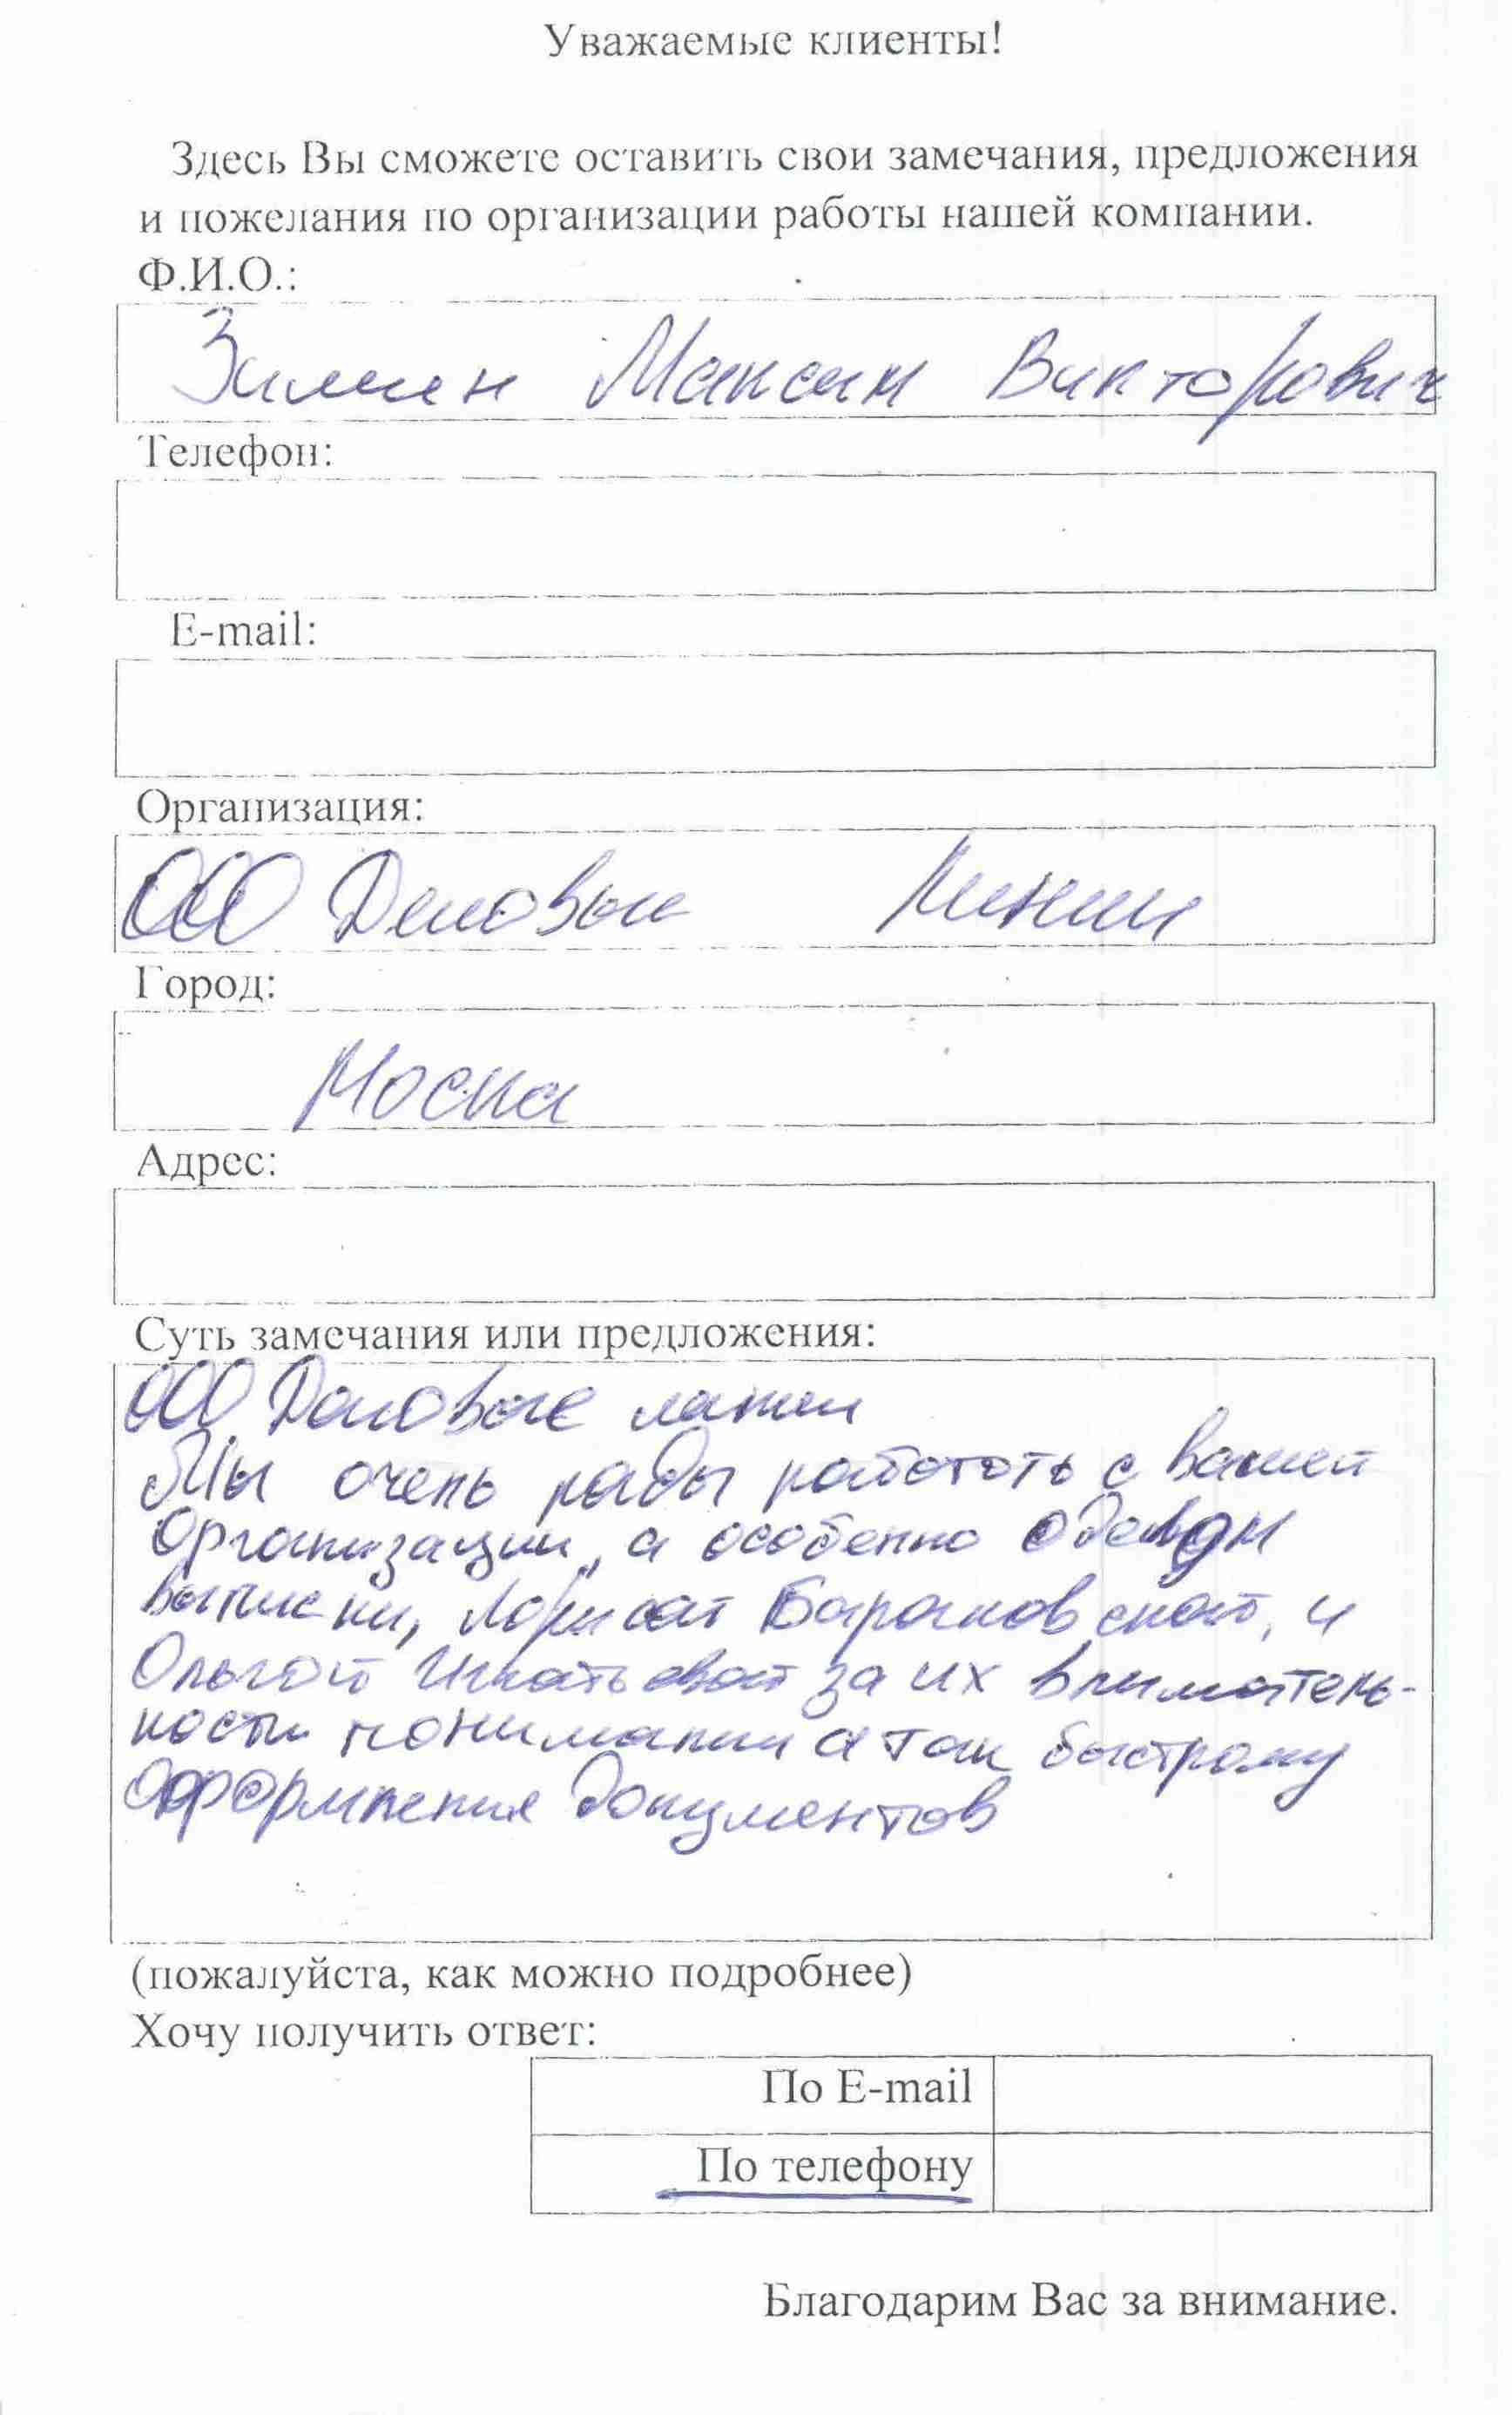 Уважаемые клиенты!
Здесь Вы сможете оставить свои замечания, предложения
и пожелания по организации работы нашей компании.
Ф.И.О.:
Зимин Максим Викторович
Телефон:
E-mail:
Организация:
ООО Деловые Линии
Город:
Москва
Адрес:
Суть замечания или предложения:
ООО Деловые линии
Мы очень рады работать с вашей
Организации, а особенно
выписки, Ларисой Барановской, и
Ольгой за их вниматель-
ности понимании а так быстрому
Оформления документов
(пожалуйста, как можно подробнее)
Хочу получить ответ:
По E-mail
По телефону
Благодарим Вас за внимание.